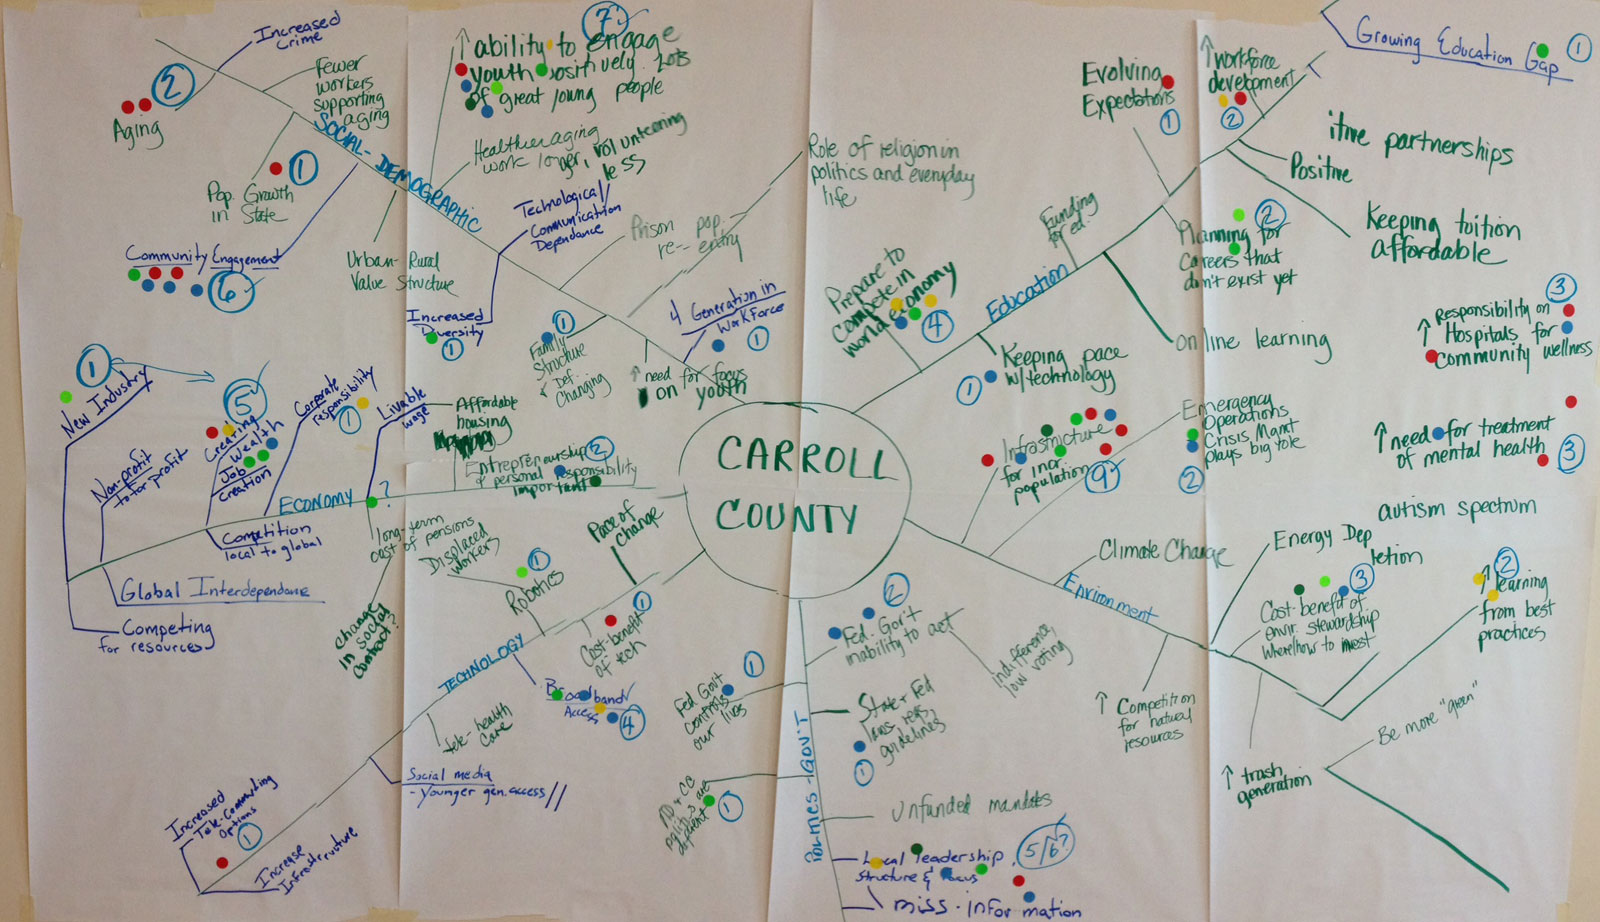 CARROLL
COUNTY
SOCIAL-DEMOGRAPHIC
Increased
Crime
2
Aging
Fewer
workers
supporting
aging
1
Pop. Growth
in State
Community Engagement
6
Urban-Rural
Value Structure
7?
↑ ability to engage
youth positively. Lots
of great young people
Healthier aging
work longer, volunteering
less
Technological/
Communication
Dependance
Increased
Diversity
1
Prison pop.
re-- entry
Role of religion in
politics and everyday
life
1
Family
Structure
& Def.
Changing
↑ need for focus
on youth
4 Generation in
Workforce
1
Education
Growing Education Gap
1
↑ workforce
development
2
Evolving
Expectations
1
itive partnerships
Positive
Keeping tuition
affordable
Funding
for ed.
2
Planning for
Careers that
don't exist yet
online learning
Prepare to
compete in
world economy
4
Keeping pace
w/technology
1
ECONOMY
?
1
New Industry
Non-profit
to for profit
5
Creating
Wealth
Job
Creation
Corporate
responsibility
1
Livable
wage
Affordable
housing
Entrepreneurship
& personal responsibility
important
2
Competition
local to global
Global Interdependance
Competing
for resources
long-term
cost of pensions
change
in social
contract?
TECHNOLOGY
Pace of
change
Displaced
workers
Robotics
1
Cost-benefit
of tech
1
Broadband
Access
4
tele-health
care
Social media
- younger gen. access//
Increased
Tele-Commuting
Options
1
Increase
Infrastructure
Environment
Infrastructure
for incr.
population
9
Emergency
Operations
Crisis Mgmt
plays big role
2
3
↑ Responsibility on
Hospitals for
community wellness
↑ need for treatment
of mental health
3
autism spectrum
Climate Change
Energy Dep
letion
3
Cost-benefit of
envir. stewardship
Where/how to invest
2
↑ learning
from best
practices
↑ Competition
for natural
resources
↑ trash
generation
Be more "green"
GOV'T
2
Fed. Gov't
inability to act
indifference,
low voting
State & Fed
laws, regs,
guidelines
1
Fed Govt
controls
our lives
1
MD & CC
politics are
different
1
Unfunded mandates
Local leadership
structure & focus
5/6?
miss-information